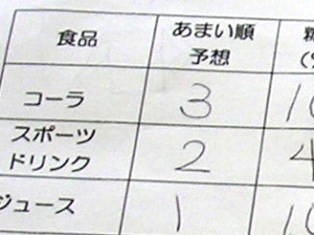 食品 あまい順
予想
コーラ 3
スポーツ
ドリンク 2 4
ジュース 1